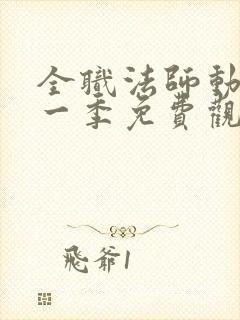 全職法師動
一季免費觀
飛爺1